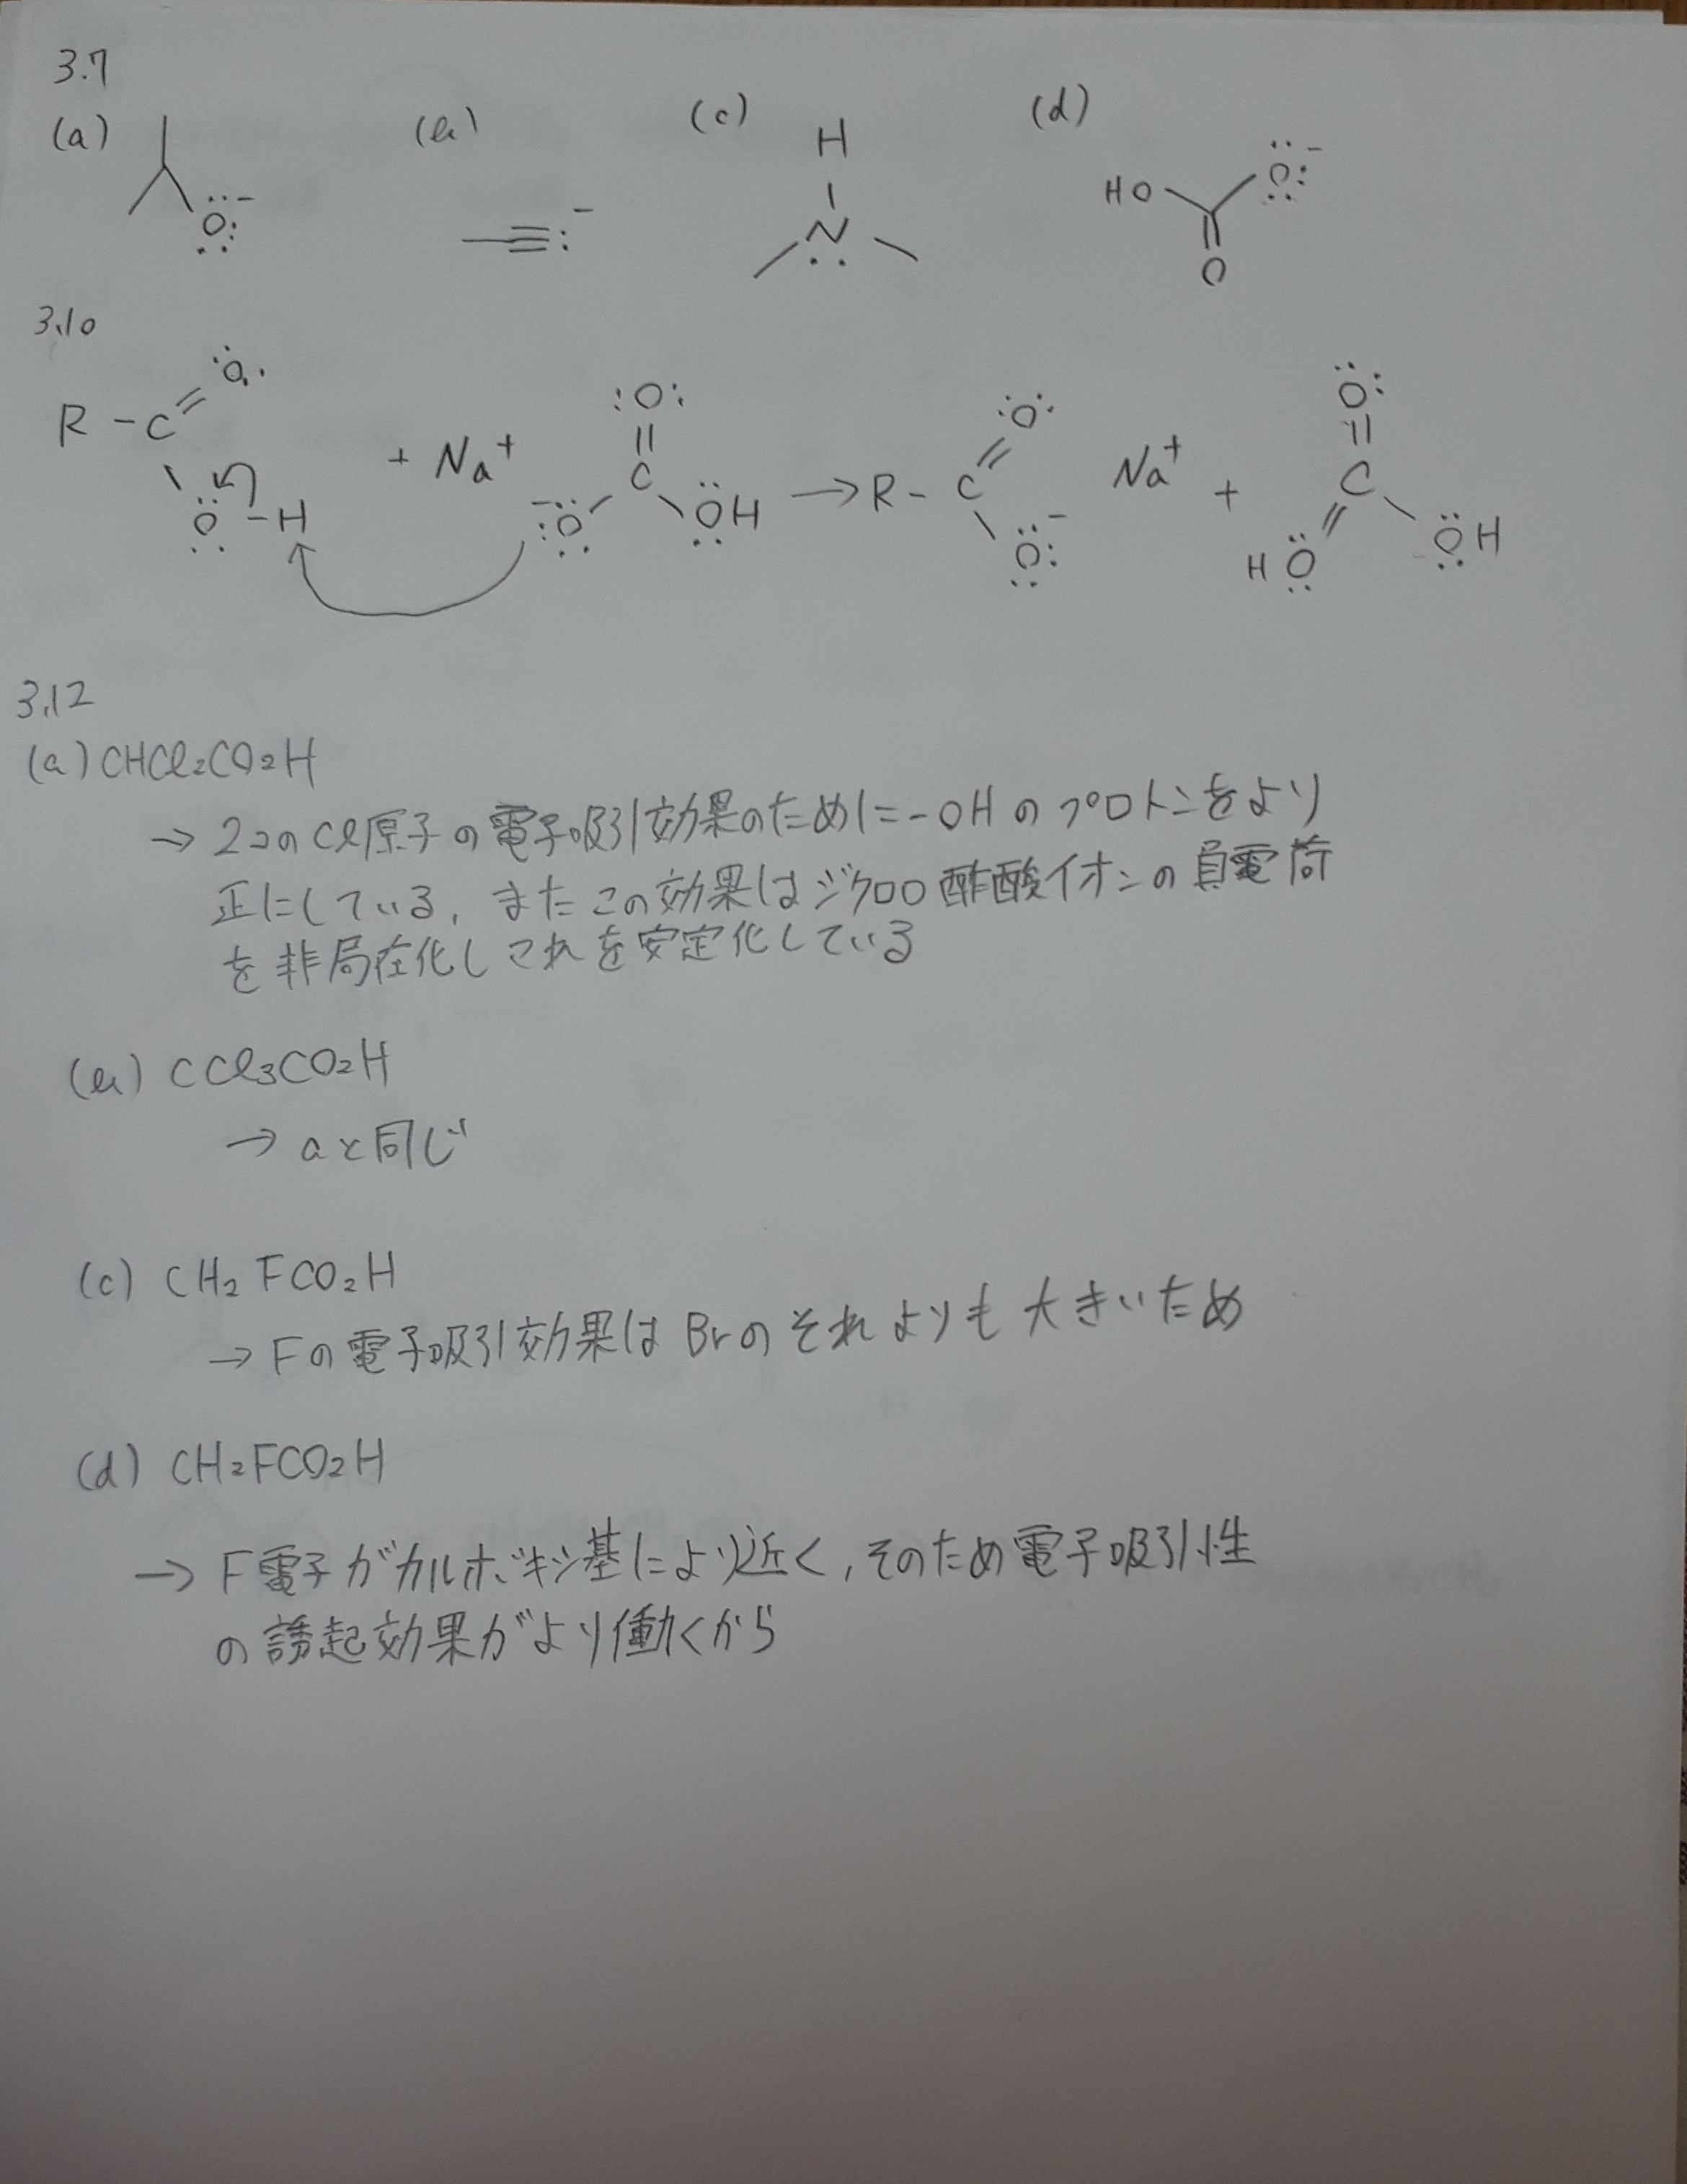 3.7
(a) (b) (c) (d)
O:⁻ :⁻ H N HO O O:⁻
3.10
R-C O O-H + Na⁺ ⁻:O C :O: OH → R-C O O:⁻ Na⁺ + O C HO OH
3.12
(a) CHCl₂CO₂H
→ 2コのCl原子の電子吸引効果のために-OHのプロトンをより
正にしている, またこの効果はジクロロ酢酸イオンの負電荷
を非局在化しこれを安定化している
(b) CCl₃CO₂H
→ aと同じ
(c) CH₂FCO₂H
→ Fの電子吸引効果はBrのそれよりも大きいため
(d) CH₂FCO₂H
→ F電子がカルボキシ基により近く, そのため電子吸引性
の誘起効果がより働くから